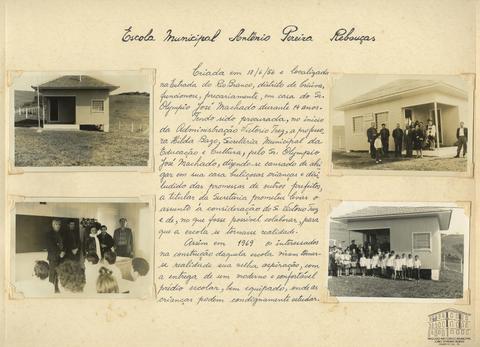 Escola Municipal Antônio Pereira Rebouças
Criada em 18/6/56 e localizada
na Estrada do Rio Branco, distrito de Criúva,
funcionou, precariamente, em casa do Sr.
Olympio José Machado durante 14 anos.
Tendo sido procurada, no início
da Administração Victorio Trez, a profess
ra Hilda Bazo, Secretária Municipal da
Educação e Cultura, pelo Sr. Olympio
José Machado, dizendo-se cansado de abri
gar em sua casa buliçosas crianças e des
iludido das promessas de outros prefeitos,
a titular da Secretaria prometeu levar o
assunto à consideração do Sr. Victorio Trez
e de, no que fosse possível colaborar, para
que a escola se tornasse realidade.
Assim em 1969 os interessados
na construção daquela escola viram tornar-
se realidade sua velha aspiração, com
a entrega de um moderno e confortável
prédio escolar, bem equipado, onde as
crianças podem condignamente estudar.